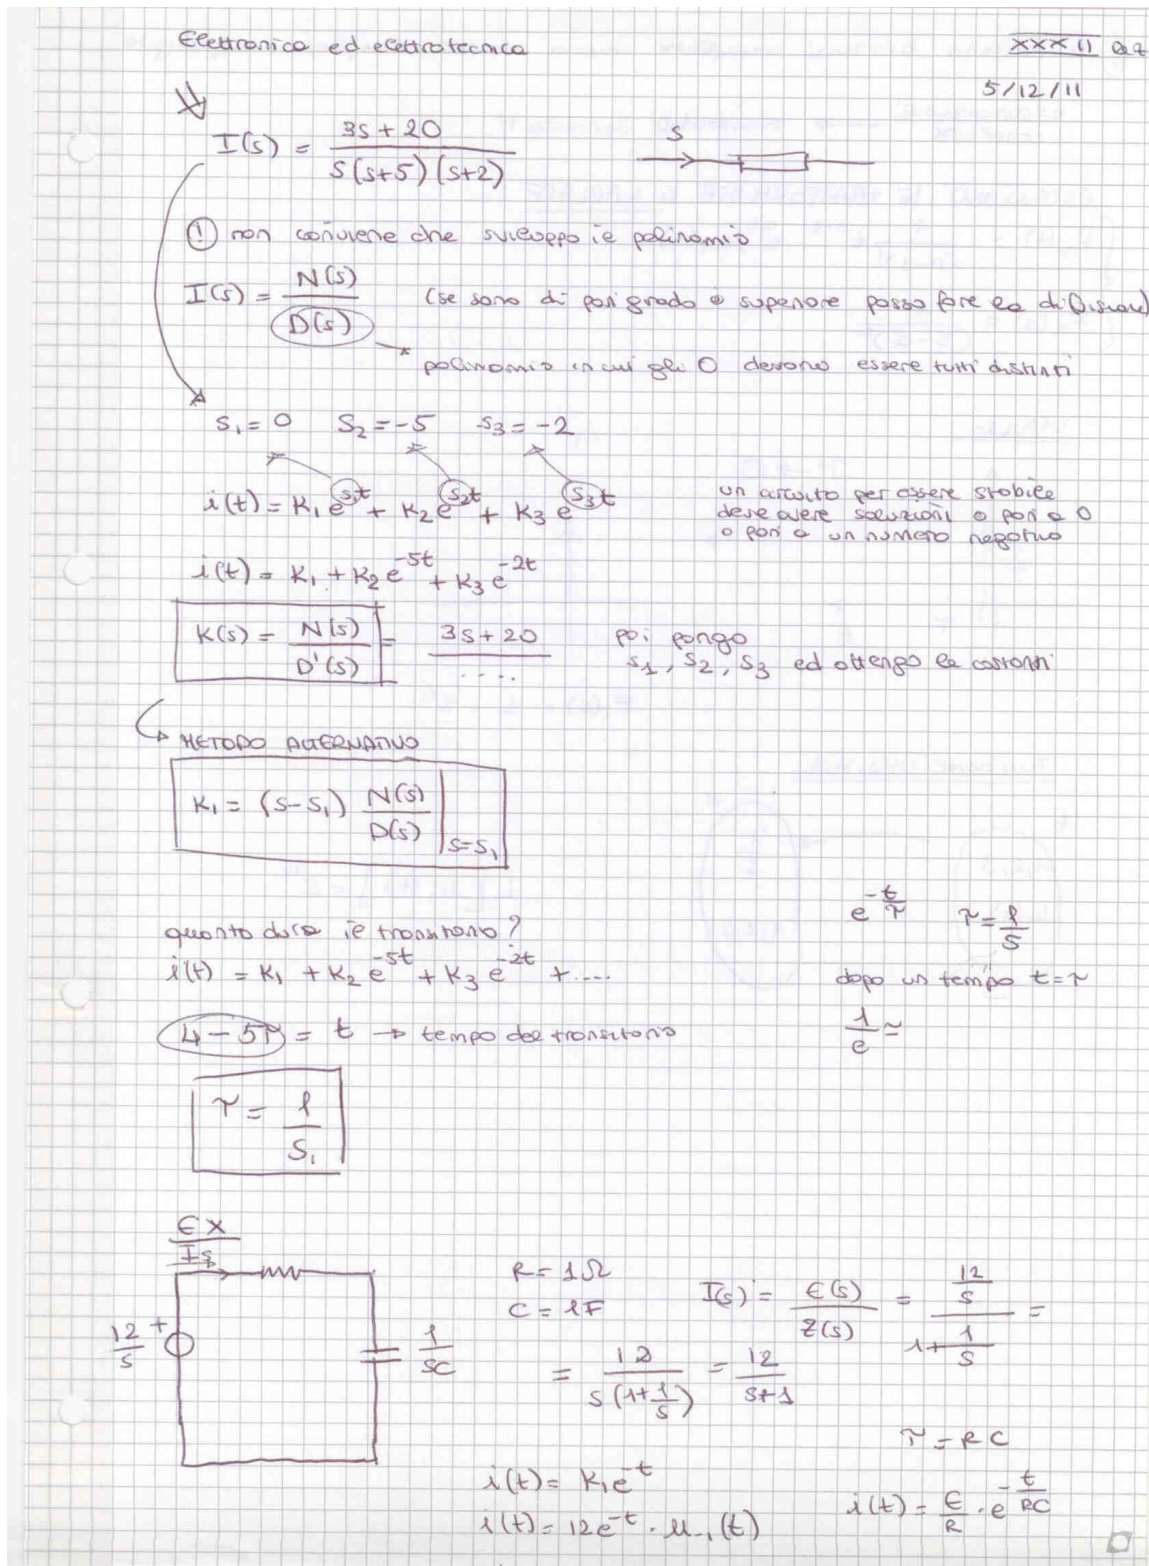 Elettronica ed elettrotecnica
XXXII
5/12/11
I(s) = (3s + 20) / (s(s+5)(s+2))
s
① non conviene che sviluppo il polinomio
I(s) = N(s) / D(s) (se sono di pari grado o superiore posso fare la divisione)
polinomio in cui gli 0 devono essere tutti distinti
s₁ = 0 s₂ = -5 s₃ = -2
i(t) = K₁ e^(s₁t) + K₂ e^(s₂t) + K₃ e^(s₃t)
un circuito per essere stabile
deve avere soluzioni o pari a 0
o pari a un numero negativo
i(t) = K₁ + K₂ e^(-5t) + K₃ e^(-2t)
K(s) = N(s) / D'(s) = (3s + 20) / ....
poi pongo
s₁, s₂, s₃ ed ottengo le costanti
METODO ALTERNATIVO
K₁ = (s-s₁) N(s) / D(s) | s=s₁
e^(-t/τ) τ = 1/s
quanto dura il transitorio?
i(t) = K₁ + K₂ e^(-5t) + K₃ e^(-2t) + ....
dopo un tempo t = τ
4 - 5τ = t → tempo del transitorio
1/e ≃
τ = 1/s₁
EX
12/s +
1/sC
R = 1Ω
C = 1F
I(s) = E(s) / Z(s) = (12/s) / (1 + 1/s) =
= 12 / (s(1 + 1/s)) = 12 / (s+1)
τ = RC
i(t) = K₁e^(-t)
i(t) = 12e^(-t) · u₋₁(t)
i(t) = E/R · e^(-t/RC)